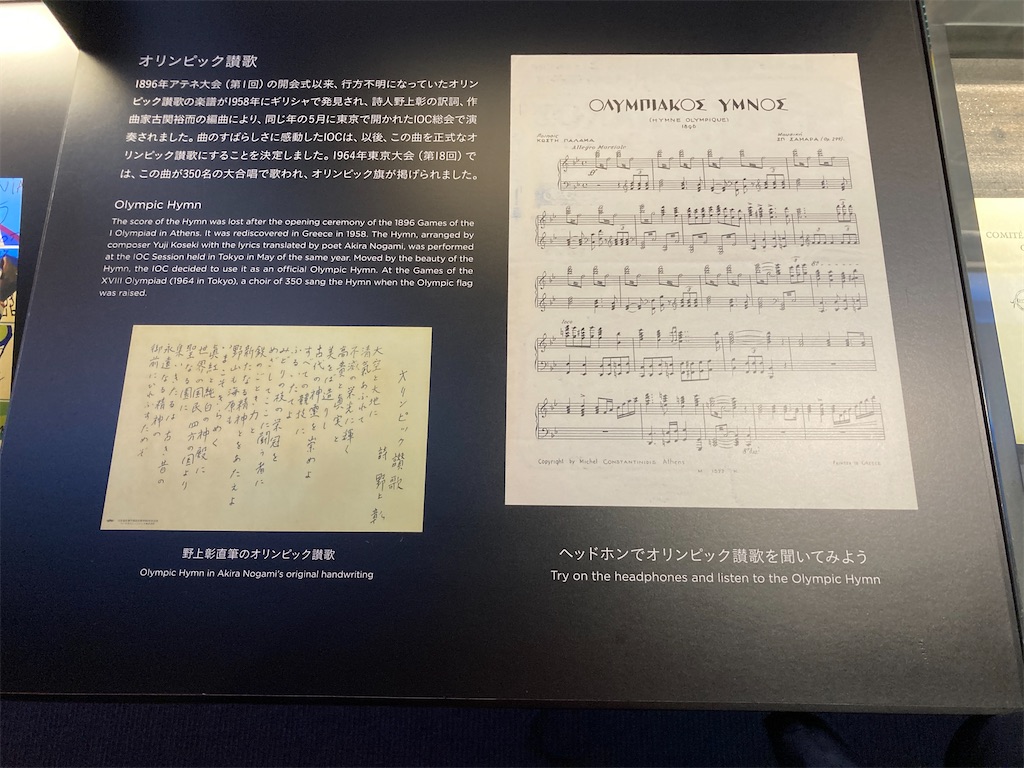 オリンピック讃歌
1896年アテネ大会(第1回)の開会式以来、行方不明になっていたオリン
ピック讃歌の楽譜が1958年にギリシャで発見され、詩人野上彰の訳詞、作
曲家古関裕而の編曲により、同じ年の5月に東京で開かれたIOC総会で演
奏されました。曲のすばらしさに感動したIOCは、以後、この曲を正式なオ
リンピック讃歌にすることを決定しました。1964年東京大会(第18回)で
は、この曲が350名の大合唱で歌われ、オリンピック旗が掲げられました。
Olympic Hymn
The score of the Hymn was lost after the opening ceremony of the 1896 Games of the
I Olympiad in Athens. It was rediscovered in Greece in 1958. The Hymn, arranged by
composer Yuji Koseki with the lyrics translated by poet Akira Nogami, was performed
at the IOC Session held in Tokyo in May of the same year. Moved by the beauty of the
Hymn, the IOC decided to use it as an official Olympic Hymn. At the Games of the
XVIII Olympiad (1964 in Tokyo), a choir of 350 sang the Hymn when the Olympic flag
was raised.
オリンピック讃歌
詩 野上彰
大空と大地に
清気あふれて
不滅の栄光に輝く
高貴と真実と
美をば造りし
古代の神霊を崇めよ
すべての競技に
ふるいたてよ
みどりの枝の栄冠を
めざしてここに闘う者に
鉄のごとき力と
新たなる精神とをあたえよ
野山も海原も
いまこそきらめく
真紅と純白の神殿に
世界の国民 四方の国より
聖なる園に
集いきたるは 古き昔の
永遠なる精神の
御前にひれふすためぞ
野上彰直筆のオリンピック讃歌
Olympic Hymn in Akira Nogami's original handwriting
ΟΛΥΜΠΙΑΚΟΣ ΥΜΝΟΣ
(HYMNE OLYMPIQUE)
1896
ΚΩΣΤΗ ΠΑΛΑΜΑ
ΣΠ. ΣΑΜΑΡΑ
Allegro Moderato
ff
loco
Copyright by Michel CONSTANTINIDIS Athens
ヘッドホンでオリンピック讃歌を聞いてみよう
Try on the headphones and listen to the Olympic Hymn
COMITÉ